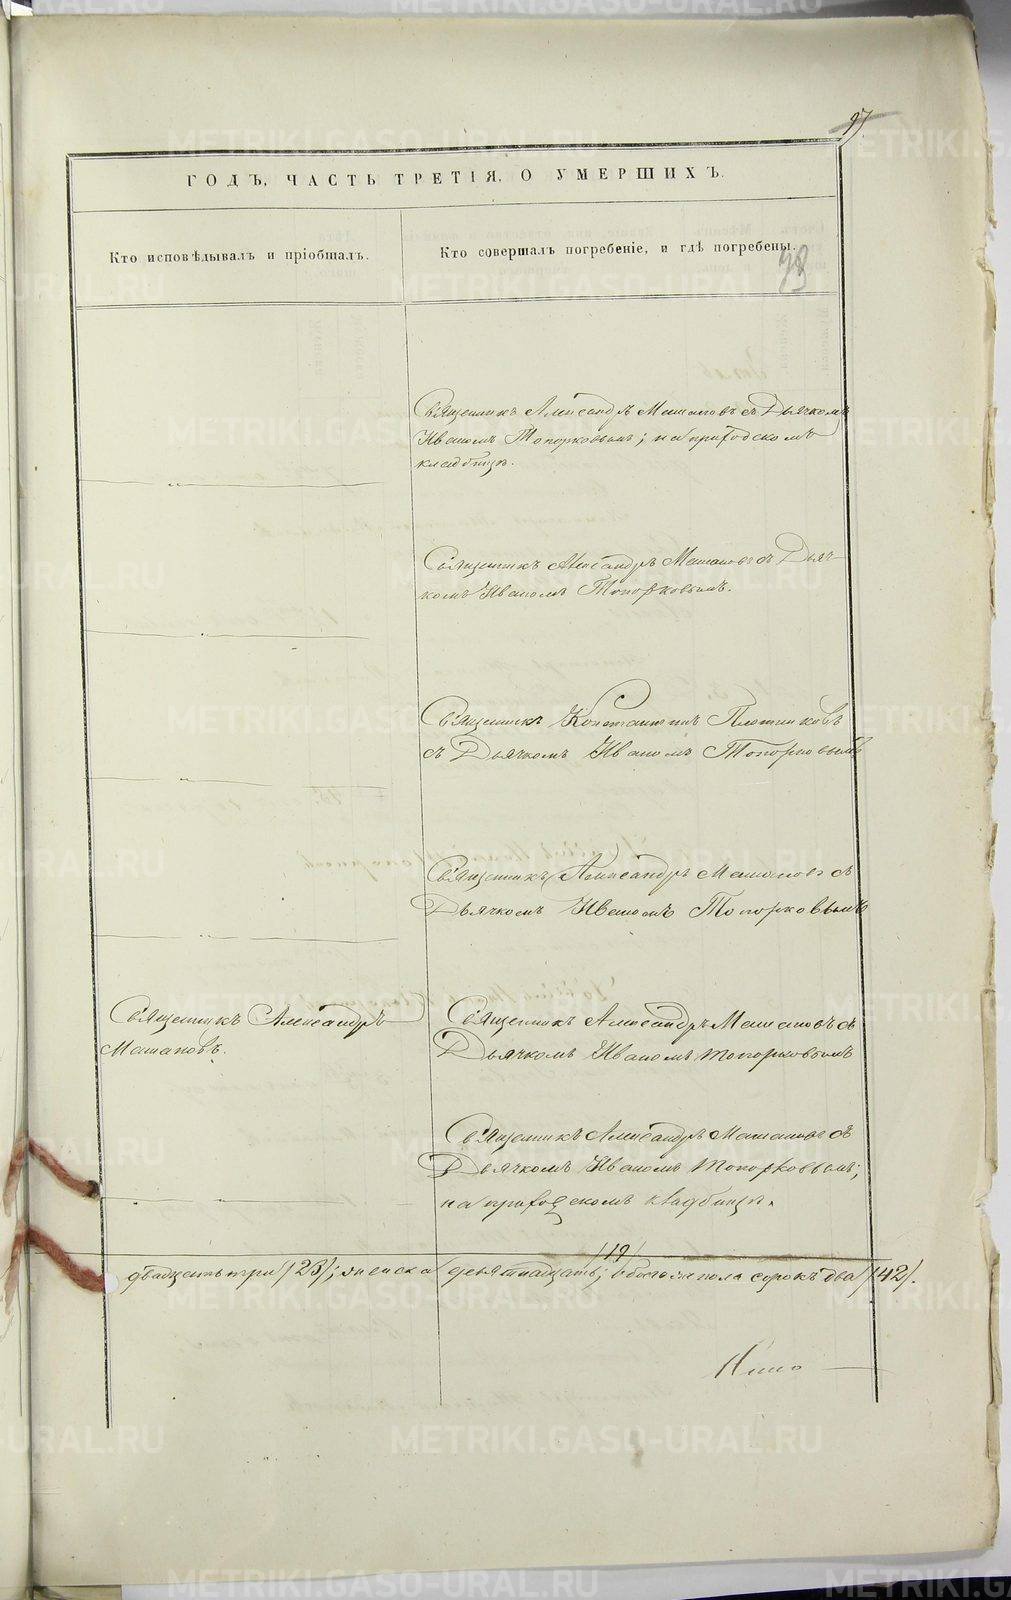 97
ГОДЪ, ЧАСТЬ ТРЕТІЯ, О УМЕРШИХЪ.
Кто исповѣдывалъ и пріобщалъ.
Кто совершалъ погребеніе, и гдѣ погребены.
98
Священникъ Александръ Матановъ съ Дьячкомъ
Иваномъ Топорковымъ; на приходскомъ
кладбищѣ.
Священникъ Александръ Матановъ съ Дьяч-
комъ Иваномъ Топорковымъ.
Священникъ Константинъ Плотниковъ
съ Дьячкомъ Иваномъ Топорковымъ
Священникъ Александръ Матановъ съ
Дьячкомъ Иваномъ Топорковымъ
Священникъ Александръ
Матановъ.
Священникъ Александръ Матановъ съ
Дьячкомъ Иваномъ Топорковымъ
Священникъ Александръ Матановъ съ
Дьячкомъ Иваномъ Топорковымъ;
на приходскомъ кладбищѣ.
двадцать три /23/; женска девятнадцать /19/; обоего же пола сорокъ два /42/.
METRIKI.GASO-URAL.RU